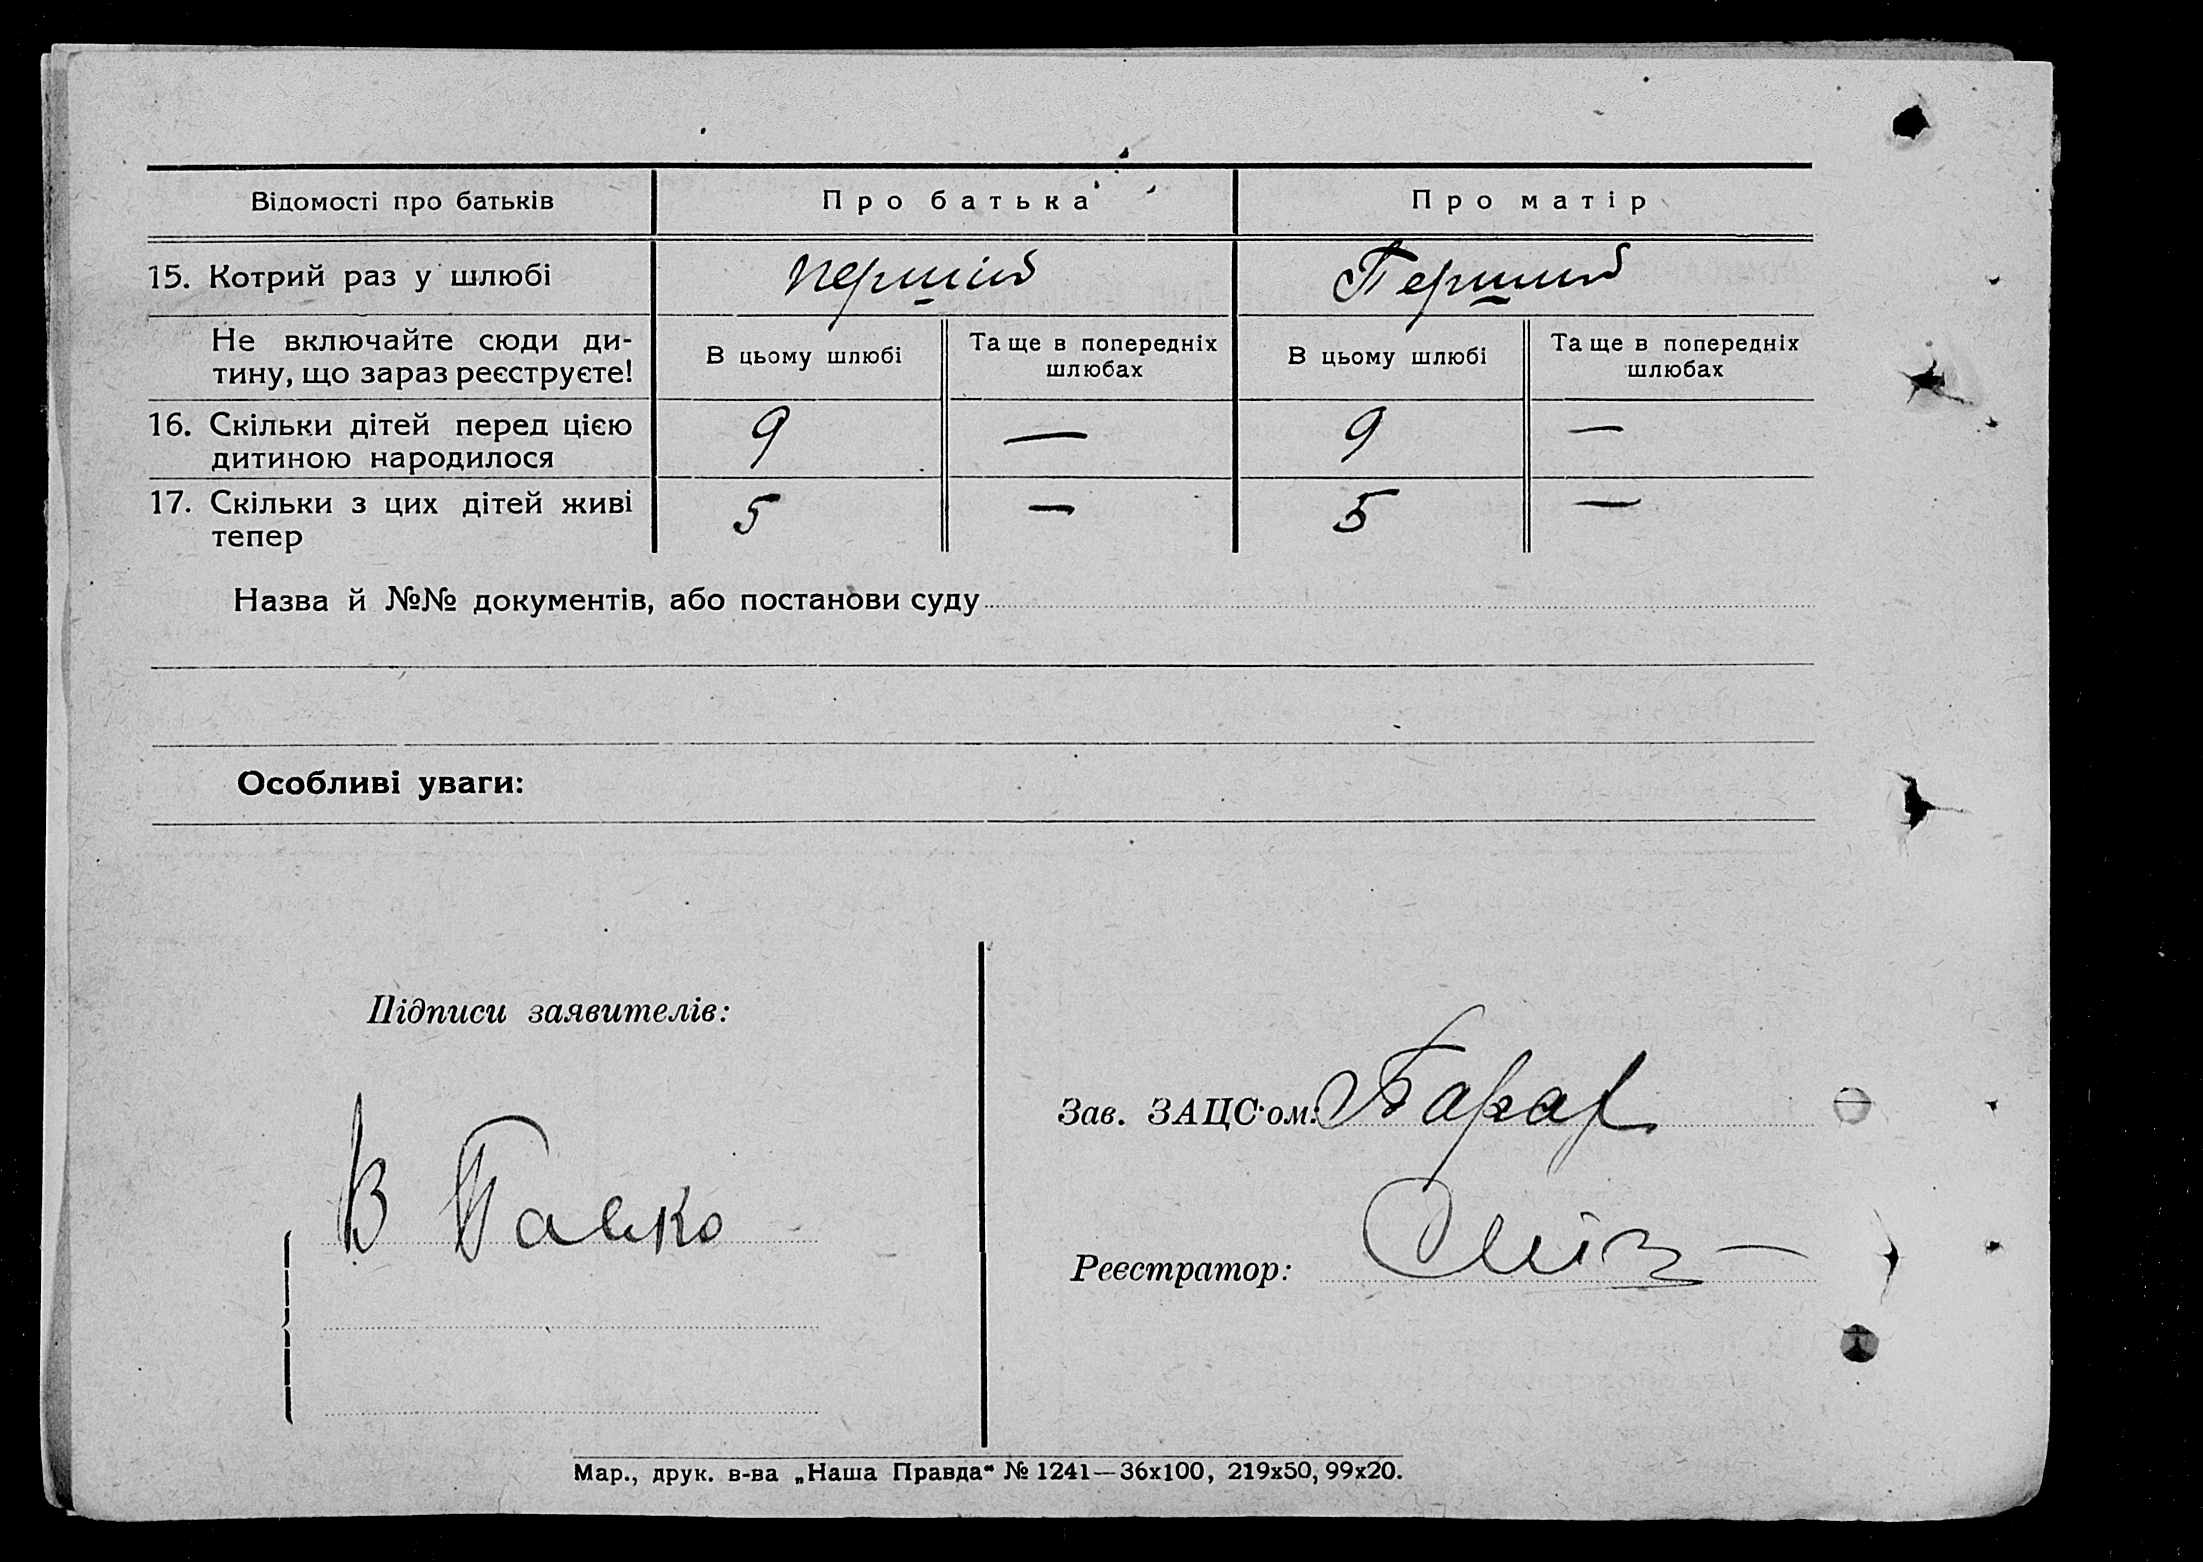 Відомості про батьків Про батька Про матір
15. Котрий раз у шлюбі перший Перший
Не включайте сюди ди-
тину, що зараз реєструєте!
В цьому шлюбі Та ще в попередніх
шлюбах
В цьому шлюбі Та ще в попередніх
шлюбах
16. Скільки дітей перед цією
дитиною народилося
9 — 9 —
17. Скільки з цих дітей живі
тепер
5 — 5 —
Назва й №№ документів, або постанови суду
Особливі уваги:
Підписи заявителів:
В
Зав. ЗАЦС'ом:
Реєстратор:
Мар., друк. в-ва „Наша Правда“ № 1241—36х100, 219х50, 99х20.